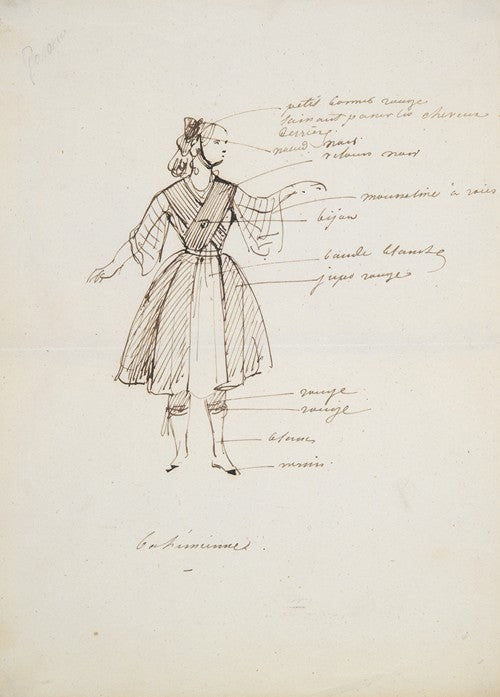 petit bonnet rouge
laissant passer les cheveux
derrière
nœud noir
velours noir
mousseline à raies
bijou
bande blanche
jupe rouge
rouge
rouge
blanc
vernis
bohémienne